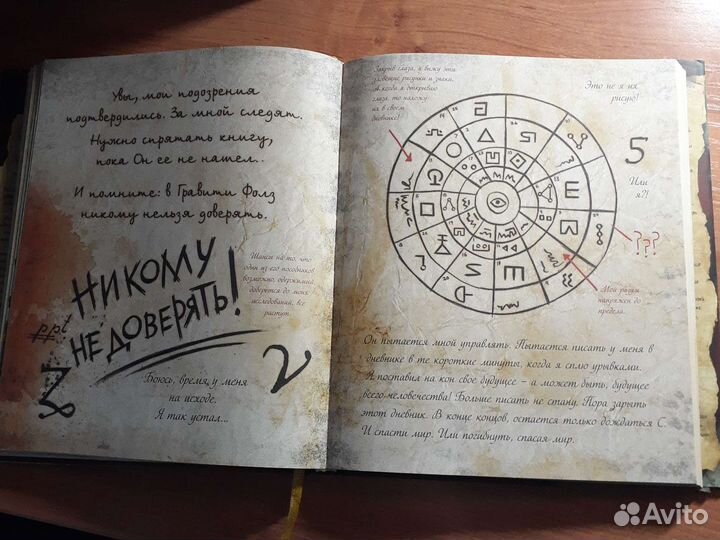 Увы, мои подозрения
подтвердились. За мной следят.
Нужно спрятать книгу,
пока Он ее не нашел..
И помните: в Гравити Фолз
никому нельзя доверять.
НИКОМУ
НЕ ДОВЕРЯТЬ!
Шансы на то, что
один из его пособников
возможно, одержимый
доберется до моих
исследований, все
растут.
ppt
Боюсь, время у меня
на исходе.
Я так устал...
2
Закрыв глаза, я вижу эти
зловещие рисунки и знаки.
А когда я открываю
глаза, то нахожу
их в своем
дневнике!
Это не я их
рисую!
5
Или
я?!
???
Мой разум
напряжен до
предела.
Он пытается мной управлять. Пытается писать у меня в
дневнике в те короткие минуты, когда я сплю урывками.
Я поставил на кон свое будущее – а может быть, будущее
всего человечества! Больше писать не стану. Пора зарыть
этот дневник. В конце концов, остается только дождаться С.
И спасти мир. Или погибнуть, спасая мир.
Avito